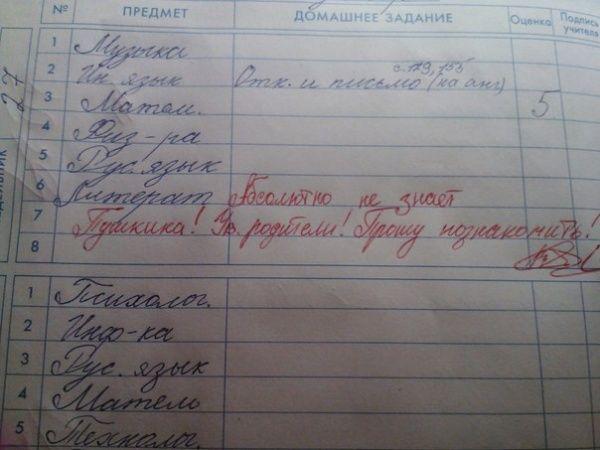 № ПРЕДМЕТ ДОМАШНЕЕ ЗАДАНИЕ Оценка Подпись учителя
27
1 Музыка
2 Ин. язык Отк. и письмо (на анг) с. 129, 155
3 Матем. 5
4 Физ-ра
5 Рус. язык
6 Литерат Абсолютно не знает
7 Пушкина! Ув. родители! Прошу познакомить!
8
1 Психолог.
2 Инф-ка
3 Рус. язык
4 Матем
5 Технолог.